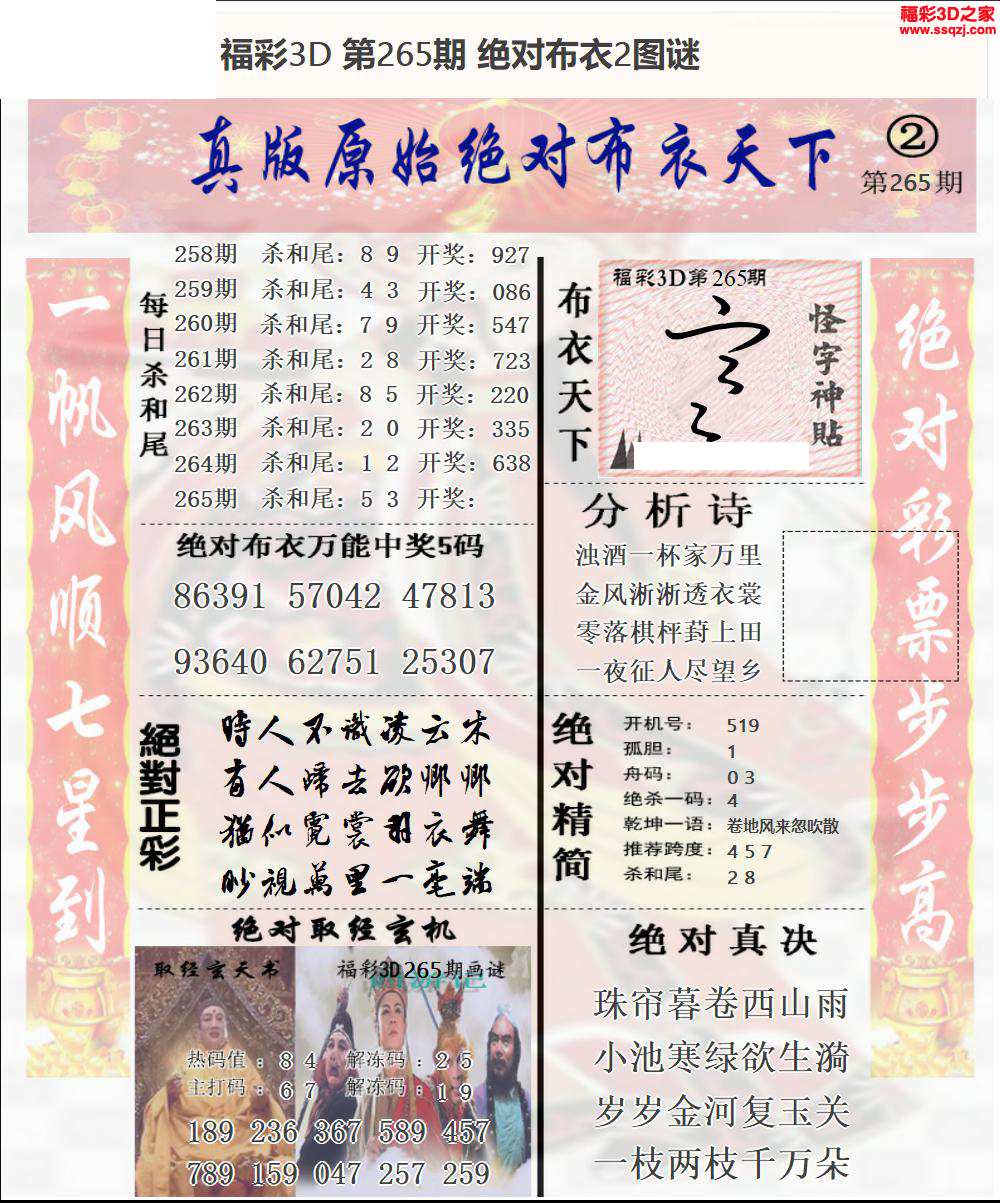 福彩3D之家
www.ssqzj.com
福彩3D 第265期 绝对布衣2图谜
真版原始绝对布衣天下
②
第265期
一帆风顺七星到
每日杀和尾
258期 杀和尾：8 9 开奖：927
259期 杀和尾：4 3 开奖：086
260期 杀和尾：7 9 开奖：547
261期 杀和尾：2 8 开奖：723
262期 杀和尾：8 5 开奖：220
263期 杀和尾：2 0 开奖：335
264期 杀和尾：1 2 开奖：638
265期 杀和尾：5 3 开奖：
绝对布衣万能中奖5码
86391 57042 47813
93640 62751 25307
絕對正彩
時人不識凌云木
有人歸去欲卿卿
猶似霓裳羽衣舞
眇視萬里一毫端
绝对取经玄机
取经玄天书
福彩3D265期画谜
热码值：8 4 解冻码：2 5
主打码：6 7 解冻码：1 9
189 236 367 589 457
789 159 047 257 259
布衣天下
福彩3D第265期
怪字神贴
分析诗
浊酒一杯家万里
金风淅淅透衣裳
零落棋枰葑上田
一夜征人尽望乡
绝对精简
开机号：519
孤胆：1
舟码：0 3
绝杀一码：4
乾坤一语：卷地风来忽吹散
推荐跨度：4 5 7
杀和尾：2 8
绝对真决
珠帘暮卷西山雨
小池寒绿欲生漪
岁岁金河复玉关
一枝两枝千万朵
绝对彩票步步高